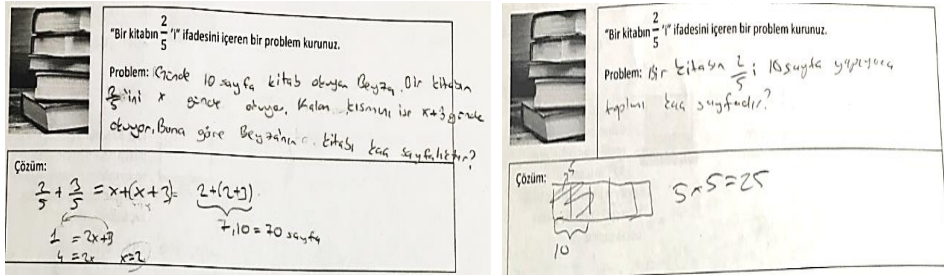 "Bir kitabın 2/5 'i" ifadesini içeren bir problem kurunuz.
Problem: Günde 10 sayfa kitab okuyan Beyza, Bir kitabın
2/5 'ini x günde okuyor, Kalan kısmını ise x+3 günde
okuyor, Buna göre Beyza'nın kitabı kaç sayfalıktır?
Çözüm:
2/5 + 3/5 = x+(x+3) = 2+(2+3)
7,10=70 sayfa
1 = 2x+3
4=2x x=2
"Bir kitabın 2/5 'i" ifadesini içeren bir problem kurunuz.
Problem: Bir kitabın 2/5 i 10 sayfa yapıyorsa
toplamı kaç sayfadır?
Çözüm:
5
5×5=25
10